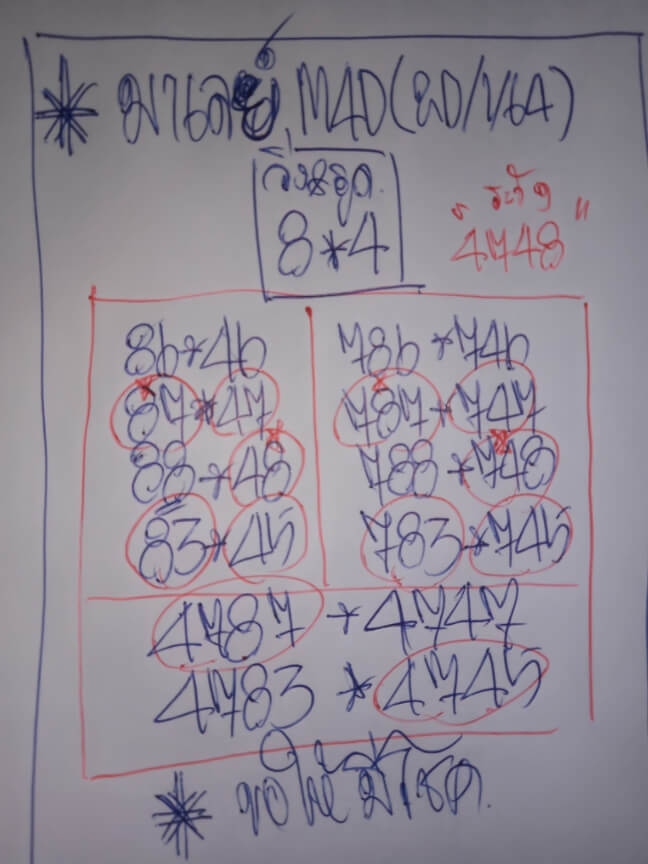 * มาเลย์ M4D (20/1/64)
วิ่งรูด
8*4
"ระวัง"
4748
86*46 786*746
87*47 787*747
88*48 788*748
83*45 783*745
4787*4747
4783*4745
* ขอให้มีโชค.